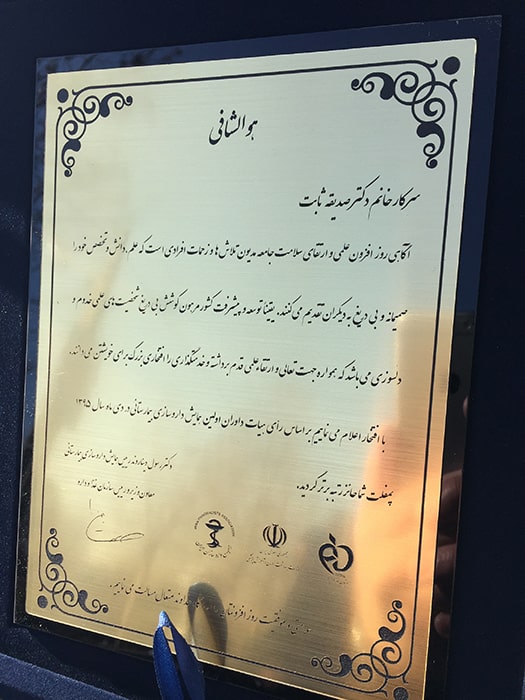 هوالشافی
سرکار خانم دکتر صدیقه ثابت
آگاهی روز افزون علمی و ارتقای سلامت جامعه مدیون تلاش ها و زحمات افرادی است که علم، دانش و تخصص خود را
صمیمانه و بی دریغ به دیگران تقدیم می کنند. یقینا توسعه و پیشرفت کشور مرهون کوشش بی دریغ شخصیت های علمی خدوم و
دلسوزی می باشد که همواره جهت تعالی و ارتقاء علمی قدم برداشته و خدمتگذاری را افتخاری بزرگ برای خویشتن می دانند.
با افتخار اعلام می نماییم بر اساس رأی هیات داوران اولین همایش داروسازی بیمارستانی در دی ماه سال ۱۳۹۵
پمفلت شما حائز رتبه برتر گردید.
دکتر رسول دیناروند رییس همایش داروسازی بیمارستانی
معاون وزیر و رییس سازمان غذا و دارو
و موفقیت روز افزونتان را از خداوند متعال مسالت می نماییم.